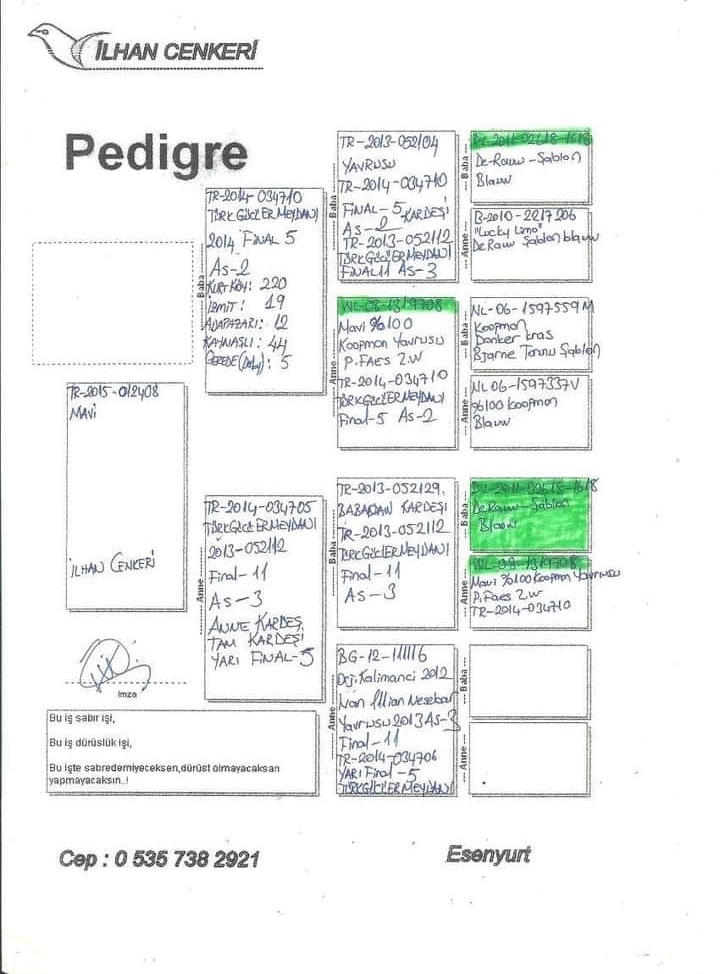 İLHAN CENKERİ
Pedigre
TR-2015-012408
MAVİ
İLHAN CENKERİ
İmza
Baba
TR-2014-034710
TÜRKGÜCLERMEYDANI
2014 FİNAL 5
As-2
KURTKÖY: 220
İZMİT: 19
ADAPAZARI: 12
KAYNAŞLI: 44
GEREDE(Dolu): 5
Anne
TR-2014-034705
TÜRKGÜCLERMEYDANI
2013-052112
Final-11
AS-3
ANNE KARDEŞ
TAM KARDEŞİ
YARI FİNAL-5
Baba
TR-2013-052104
YAVRUSU
TR-2014-034710
FİNAL-5
As-2 KARDEŞİ
TR-2013-052112
TÜRKGÜCLERMEYDANI
FİNAL11 AS-3
Anne
NL-08-1319708
Mavi %100
Koopmon Yavrusu
P.FAES 2.W
TR-2014-034710
TÜRKGÜCLERMEYDANI
Final-5 As-2
Baba
TR-2013-052129.
BABADAN KARDEŞİ
TR-2013-052112
TÜRKGÜCLERMEYDANI
Final-11
AS-3
Anne
BG-12-111116
Kalimanci 2012
Ivan Illian Nesebar
Yavrusu 2013 AS-3
Final-11
TR-2014-034706
YARI Final-5
TÜRKGÜCLERMEYDANI
Baba
2011-02618-1618
De-Rauw-Şablon
Blauw
Anne
B-2010-2217206
"Lucky Limo"
DeRauw Şablon blauw
Baba
NL-06-1597559 M
Koopmon
Donker kras
Bjarne Şablon
Anne
NL 06-1597337V
%100 Koopmon
Blauw
Baba
2011-02618-1618
DeRauw-Şablon
Blaow
Anne
1319708
Mavi %100 Koopmon Yavrusu
P.Faes 2w
TR-2014-034710
Baba
Anne
Bu iş sabır işi,
Bu iş dürüslük işi,
Bu işte sabredemiyeceksen,dürüst olmayacaksan
yapmayacaksın..!
Cep : 0 535 738 2921
Esenyurt